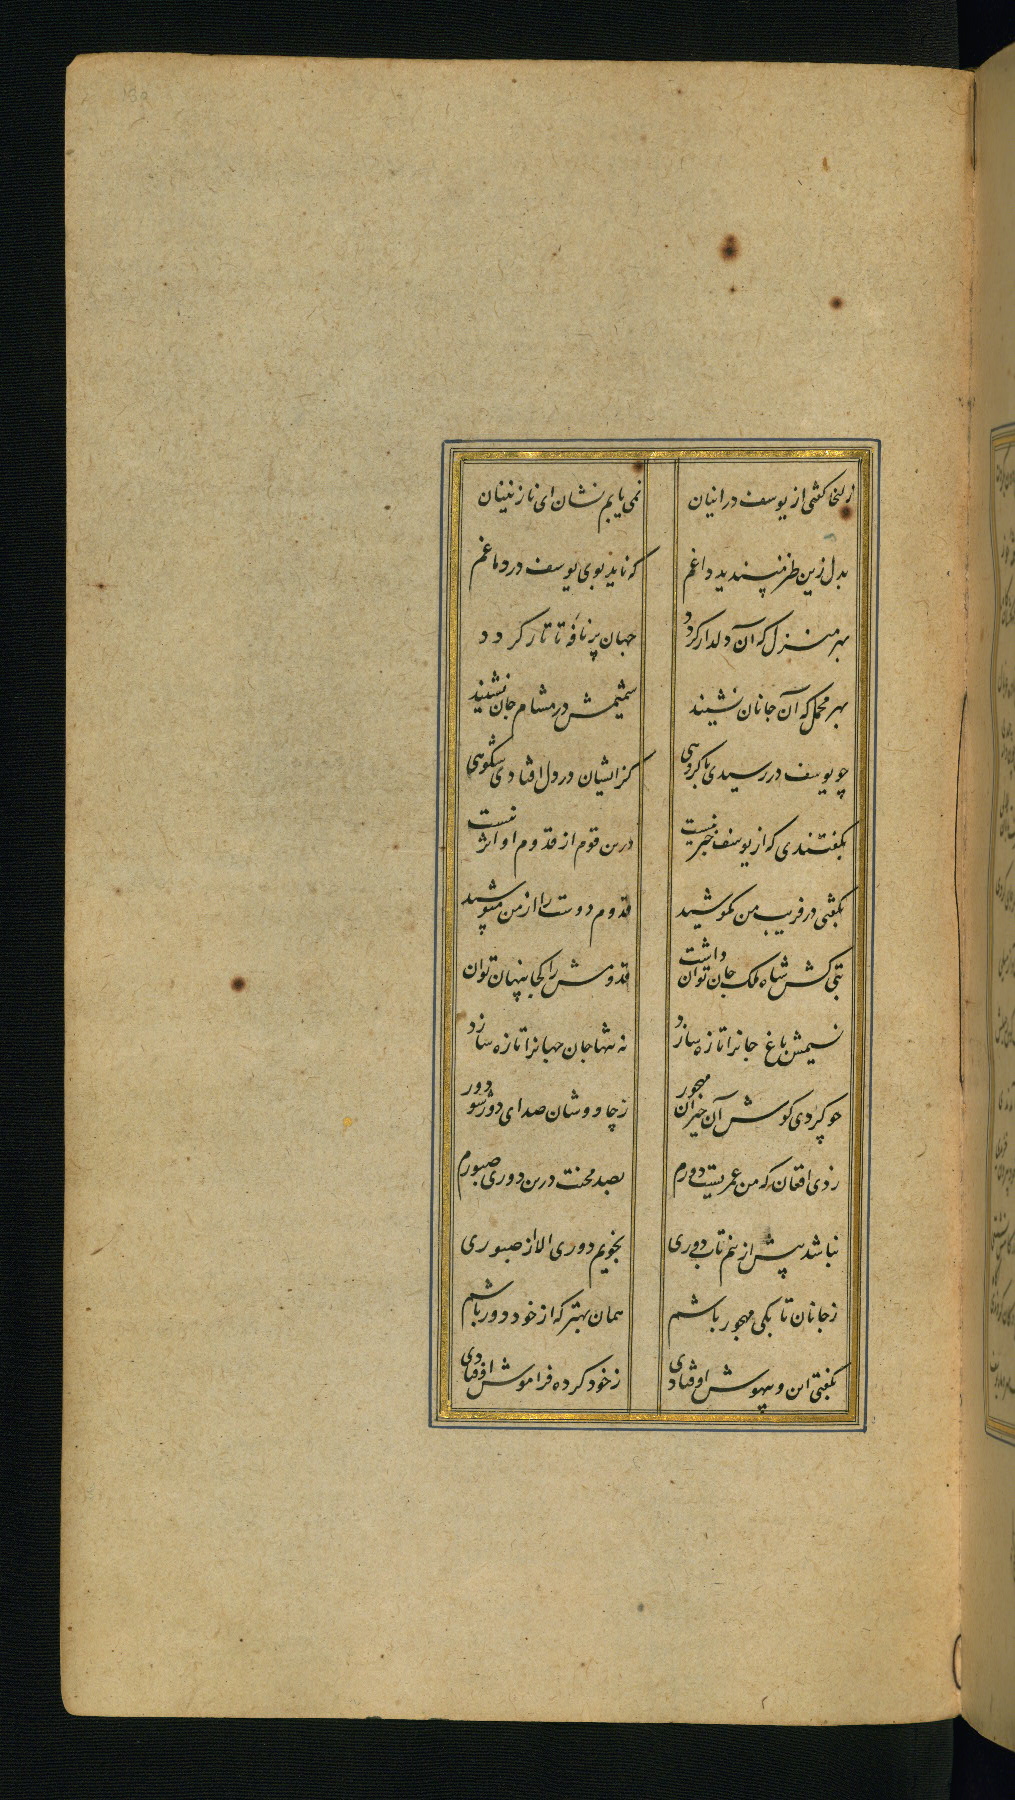 زلیخا کفتی از یوسف در اینان نمی یابم نشان ای نازنینان
بدل زین طرز مپسندید داغم که ناید بوی یوسف در دماغم
بهر منزل که آن دلدار کردد جهان پر نافه تاتار کردد
بهر محمل که آن جانان نشیند شمیمش در مشام جان نشیند
چو یوسف در رسیدی با کروهی کز ایشان در دل افتادی شکوهی
بکفتندی که از یوسف خبر نیست درین قوم از قدوم او اثر نیست
بکفتی در فریب من مکوشید قدوم دوست را از من مپوشید
بتی کش شاه ملک جان توان داشت قدومش را کجا پنهان توان
نسیمش باغ جانرا تازه سازد نه تنها جان جهانرا تازه سازد
چو کردی کوش آن حیران مهجور ز چاووشان صدای دور شو دور
زدی افغان که من عمریست دورم بصد محنت درین دوری صبورم
نباشد پیش ازینم تاب دوری بخویم دوری الا از صبوری
ز جانان تا بکی مهجور باشم همان بهتر که از خود دور باشم
بکفتی این و بیهوش اوفتادی ز خود کرده فراموش اوفتادی